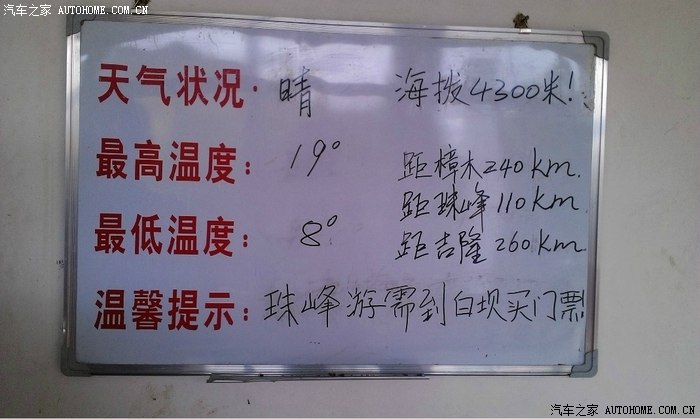 汽车之家 AUTOHOME.COM.CN
天气状况: 晴 海拨4300米!
最高温度: 19° 距樟木240km.
距珠峰110km
最低温度: 8° 距吉隆260km
温馨提示: 珠峰游需到白坝买门票!
汽车之家 AUTOHOME.COM.CN